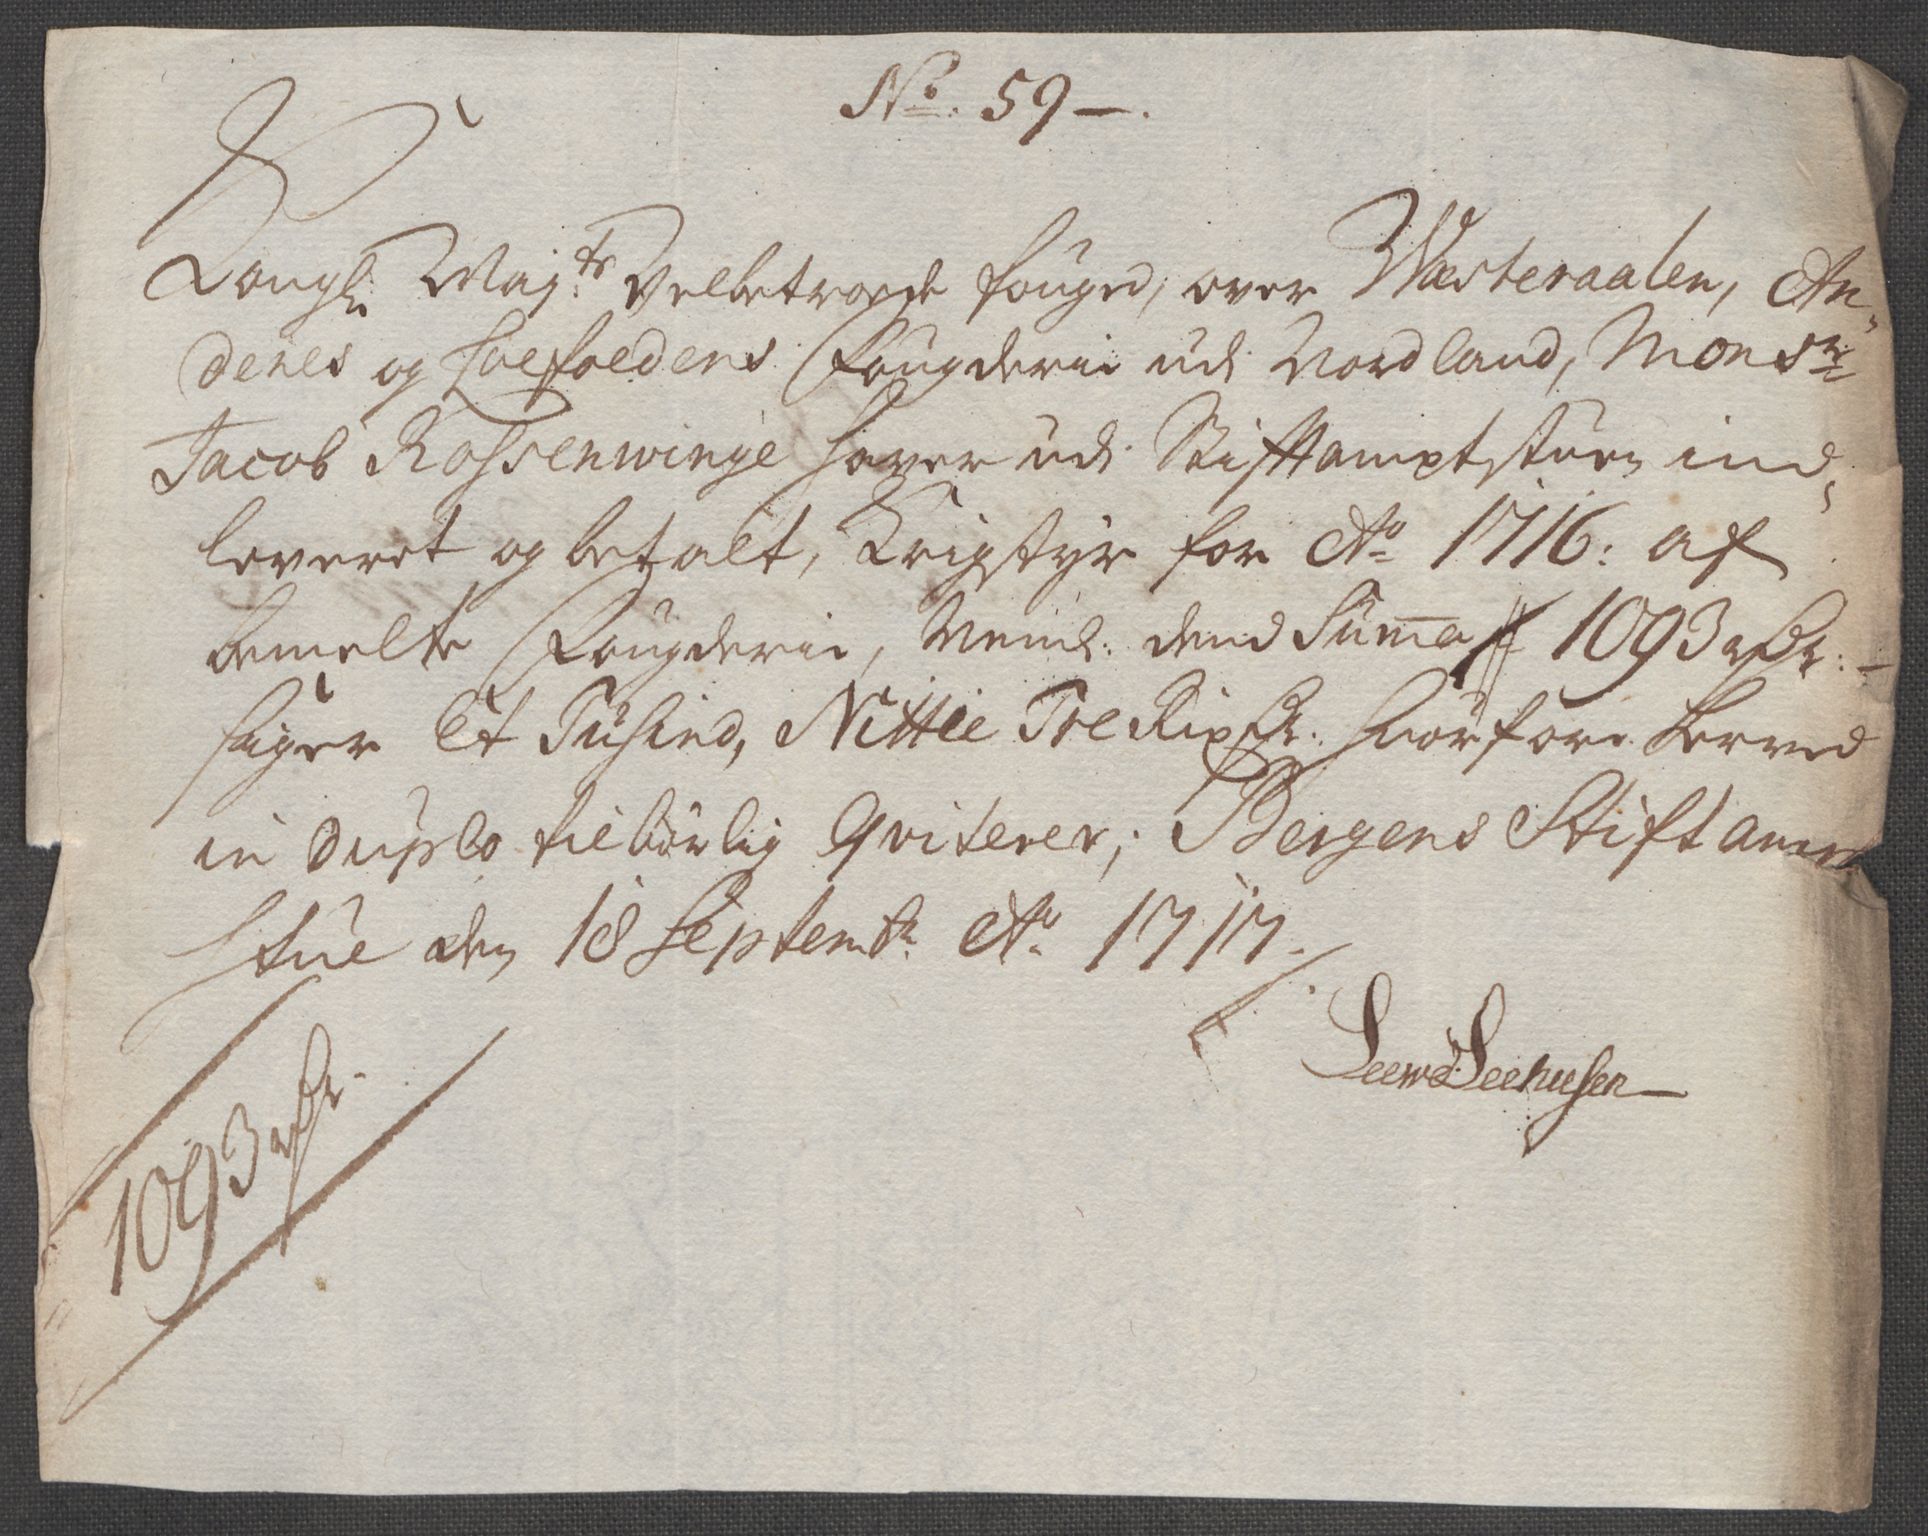 No. 59 —.
Kongl: Maj:ts Velbetroede fouged, over Wæsteraalen, An-
denes og Loefoedens Fougderie udi Nordland, Monsr:
Jacob Rossenwinge haver udi Stiftamptstuen ind-
leveret og betalt, Krigstyr for Ao 1716: af
bemelte Fougderie, Neml: dend Summa # 1093 rdr: -
siger Et Tusind, Nittie Tre Rixdr. huorfore herved
in duplo tilbørlig Qviterer; Bergens Stiftampt
stue den 18 Septembr. Ao. 1717.
Seehusen
1093 rdr.